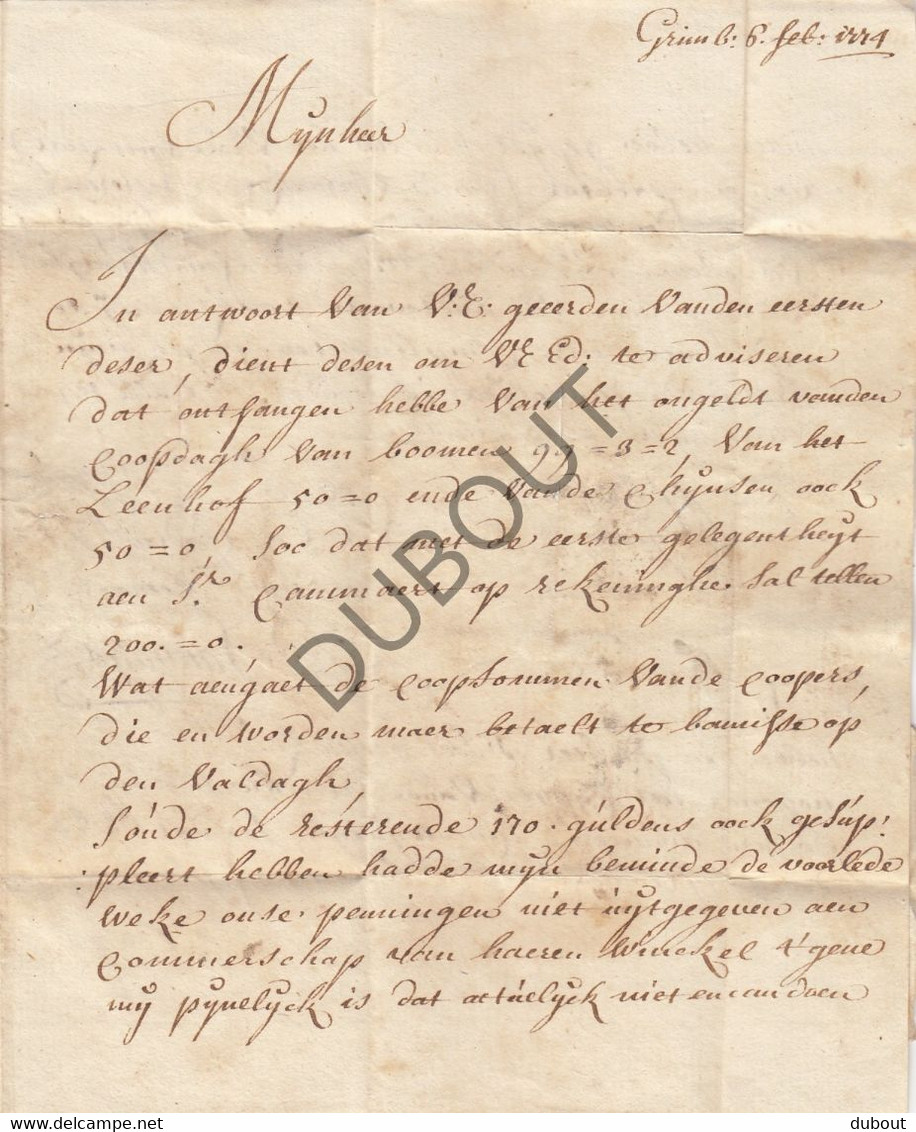 Grimb: 6. feb: 1774
Mynheer
In antwoort van V:E: geeerden vanden eersten
deser, dient desen om VE Ed: te adviseren
dat ontfangen hebbe van het ongeldt vanden
coopdagh van boomen 99=3=2, van het
Leenhof 50=0 ende vande Chynsen oock
50=0, soo dat met de eerste gelegentheyt
aen Sr. Cammaert op rekeninghe sal tellen
200.=0.
Wat aengaet de coopsommen vande coopers,
die en worden maer betaelt te bamisse op
den valdagh,
sonde de resterende 170. guldens oock gesup:
:pleert hebben hadde myn beminde de voorlede
weke onse penningen niet uytgegeven aen
commerschap van haeren winckel t'gene
my pynelyck is dat actuelyck niet en can doen
DUBOUT
delcampe.net
dubout